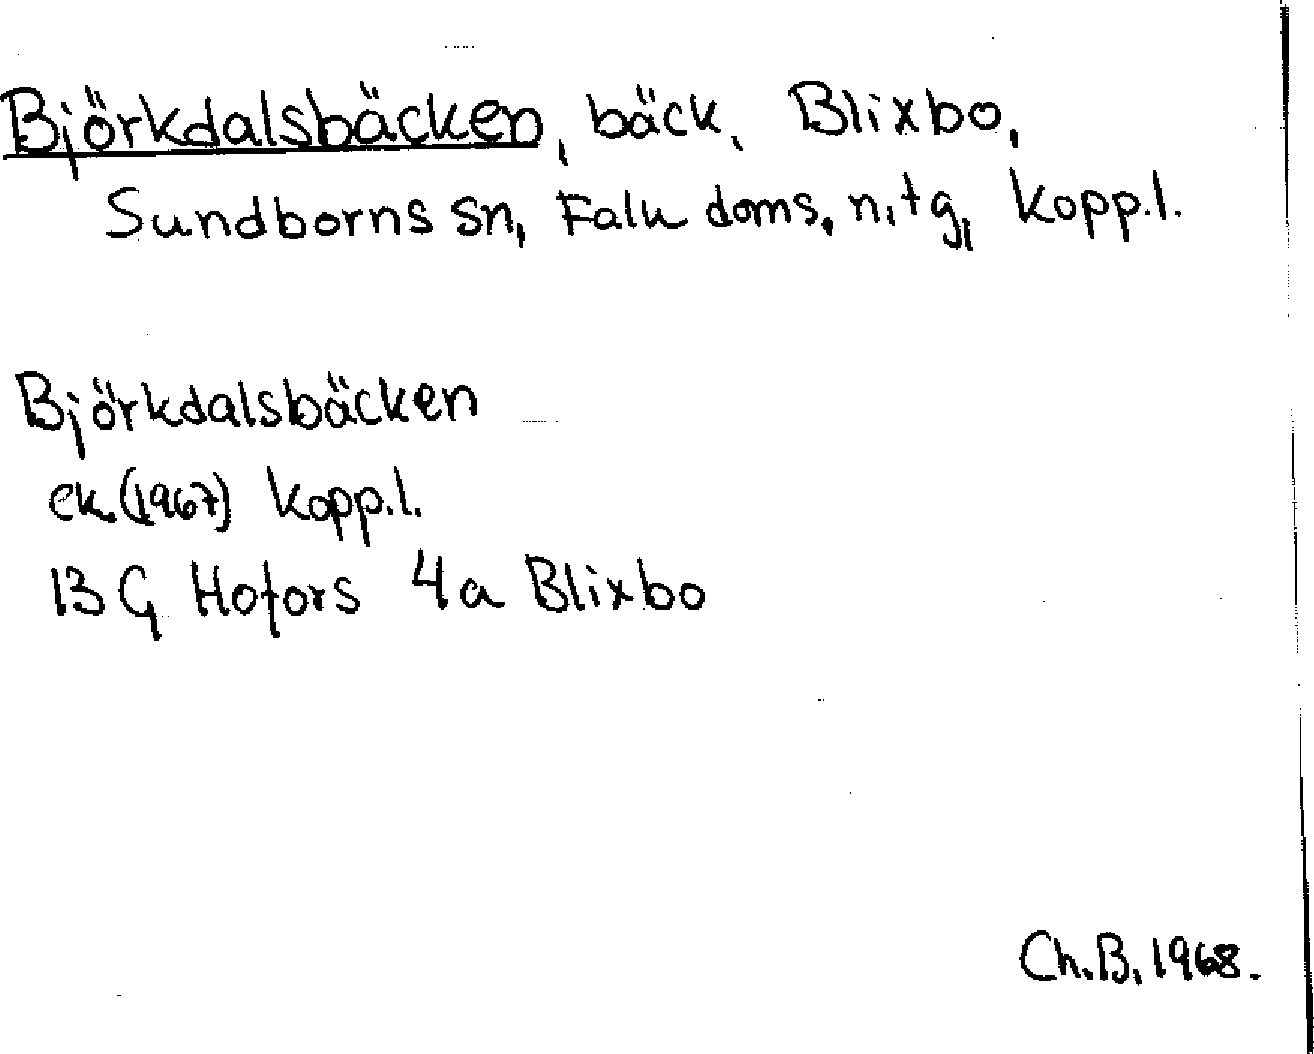 Björkdalsbäcken, bäck, Blixbo,
Sundborns sn, Falu doms, n, tg, Kopp.l.
Björkdalsbäcken
ek.(1967) Kopp.l.
13 G Hofors 4a Blixbo
Ch.B, 1968.